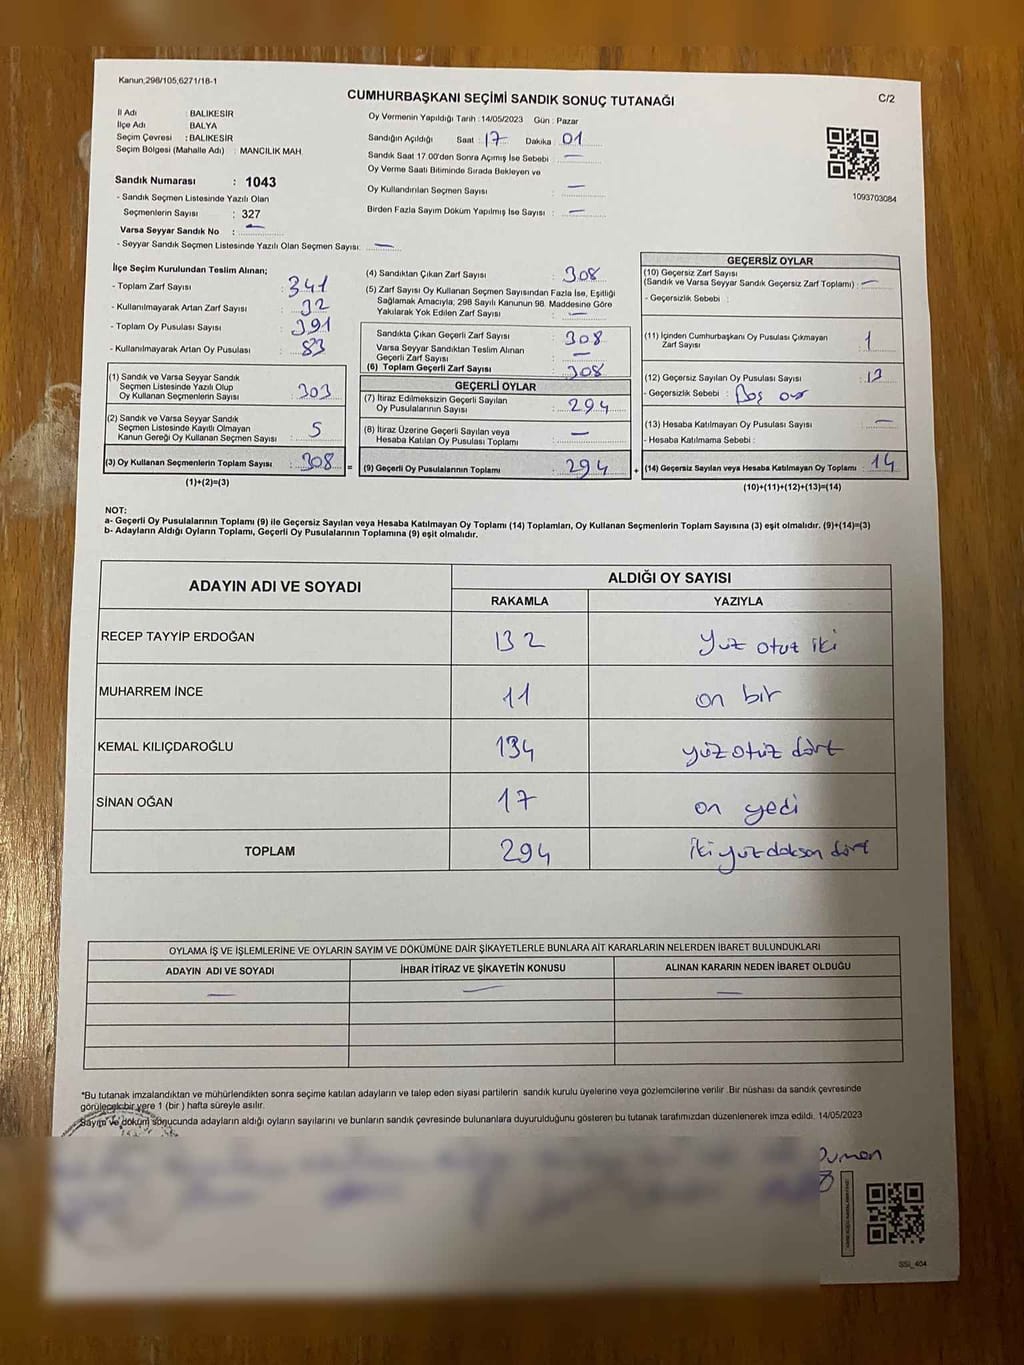 Kanun,298/105,6271/16-1
C/2
CUMHURBAŞKANI SEÇİMİ SANDIK SONUÇ TUTANAĞI
İl Adı : BALIKESİR
İlçe Adı BALYA
Seçim Çevresi : BALIKESİR
Seçim Bölgesi (Mahalle Adı) : MANCILIK MAH.
Oy Vermenin Yapıldığı Tarih : 14/05/2023 Gün : Pazar
Sandığın Açıldığı Saat : 17 Dakika 01
Sandık Saat 17.00'den Sonra Açımış İse Sebebi —
Oy Verme Saati Bitiminde Sırada Bekleyen ve
Oy Kullandırılan Seçmen Sayısı —
Birden Fazla Sayım Döküm Yapılmış İse Sayısı : —
1093703084
Sandık Numarası : 1043
- Sandık Seçmen Listesinde Yazılı Olan
Seçmenlerin Sayısı : 327
Varsa Seyyar Sandık No : —
- Seyyar Sandık Seçmen Listesinde Yazılı Olan Seçmen Sayısı: —
İlçe Seçim Kurulundan Teslim Alınan;
- Toplam Zarf Sayısı : 341
- Kullanılmayarak Artan Zarf Sayısı : 32
- Toplam Oy Pusulası Sayısı : 391
- Kullanılmayarak Artan Oy Pusulası : 83
(1) Sandık ve Varsa Seyyar Sandık
Seçmen Listesinde Yazılı Olup
Oy Kullanan Seçmenlerin Sayısı : 303
(2) Sandık ve Varsa Seyyar Sandık
Seçmen Listesinde Kayıtlı Olmayan
Kanun Gereği Oy Kullanan Seçmen Sayısı : 5
(3) Oy Kullanan Seçmenlerin Toplam Sayısı : 308 =
(1)+(2)=(3)
(4) Sandıktan Çıkan Zarf Sayısı : 308
(5) Zarf Sayısı Oy Kullanan Seçmen Sayısından Fazla İse, Eşitliği
Sağlamak Amacıyla; 298 Sayılı Kanunun 98. Maddesine Göre
Yakılarak Yok Edilen Zarf Sayısı : —
Sandıkta Çıkan Geçerli Zarf Sayısı : 308
Varsa Seyyar Sandıktan Teslim Alınan
Geçerli Zarf Sayısı —
(6) Toplam Geçerli Zarf Sayısı : 308
GEÇERLİ OYLAR
(7) İtiraz Edilmeksizin Geçerli Sayılan
Oy Pusulalarının Sayısı : 294
(8) İtiraz Üzerine Geçerli Sayılan veya
Hesaba Katılan Oy Pusulası Toplamı : —
(9) Geçerli Oy Pusulalarının Toplamı : 294 +
GEÇERSİZ OYLAR
(10) Geçersiz Zarf Sayısı
(Sandık ve Varsa Seyyar Sandık Geçersiz Zarf Toplamı) : —
- Geçersizlik Sebebi :
(11) İçinden Cumhurbaşkanı Oy Pusulası Çıkmayan
Zarf Sayısı 1
(12) Geçersiz Sayılan Oy Pusulası Sayısı : 13
- Geçersizlik Sebebi : Boş oy
(13) Hesaba Katılmayan Oy Pusulası Sayısı —
- Hesaba Katılmama Sebebi :
(14) Geçersiz Sayılan veya Hesaba Katılmayan Oy Toplamı : 14
(10)+(11)+(12)+(13)=(14)
NOT:
a- Geçerli Oy Pusulalarının Toplamı (9) ile Geçersiz Sayılan veya Hesaba Katılmayan Oy Toplamı (14) Toplamları, Oy Kullanan Seçmenlerin Toplam Sayısına (3) eşit olmalıdır. (9)+(14)=(3)
b- Adayların Aldığı Oyların Toplamı, Geçerli Oy Pusulalarının Toplamına (9) eşit olmalıdır.
ADAYIN ADI VE SOYADI ALDIĞI OY SAYISI
RAKAMLA YAZIYLA
RECEP TAYYİP ERDOĞAN 132 Yüz otuz iki
MUHARREM İNCE 11 on bir
KEMAL KILIÇDAROĞLU 134 yüz otuz dört
SİNAN OĞAN 17 on yedi
TOPLAM 294 iki yüz doksan dört
OYLAMA İŞ VE İŞLEMLERİNE VE OYLARIN SAYIM VE DÖKÜMÜNE DAİR ŞİKAYETLERLE BUNLARA AİT KARARLARIN NELERDEN İBARET BULUNDUKLARI
ADAYIN ADI VE SOYADI İHBAR İTİRAZ VE ŞİKAYETİN KONUSU ALINAN KARARIN NEDEN İBARET OLDUĞU
— — —
*Bu tutanak imzalandıktan ve mühürlendikten sonra seçime katılan adayların ve talep eden siyasi partilerin sandık kurulu üyelerine veya gözlemcilerine verilir .Bir nüshası da sandık çevresinde
görülecek bir yere 1 (bir ) hafta süreyle asılır.
Sayım ve döküm sonucunda adayların aldığı oyların sayılarını ve bunların sandık çevresinde bulunanlara duyurulduğunu gösteren bu tutanak tarafımızdan düzenlenerek imza edildi. 14/05/2023
SSİ_404